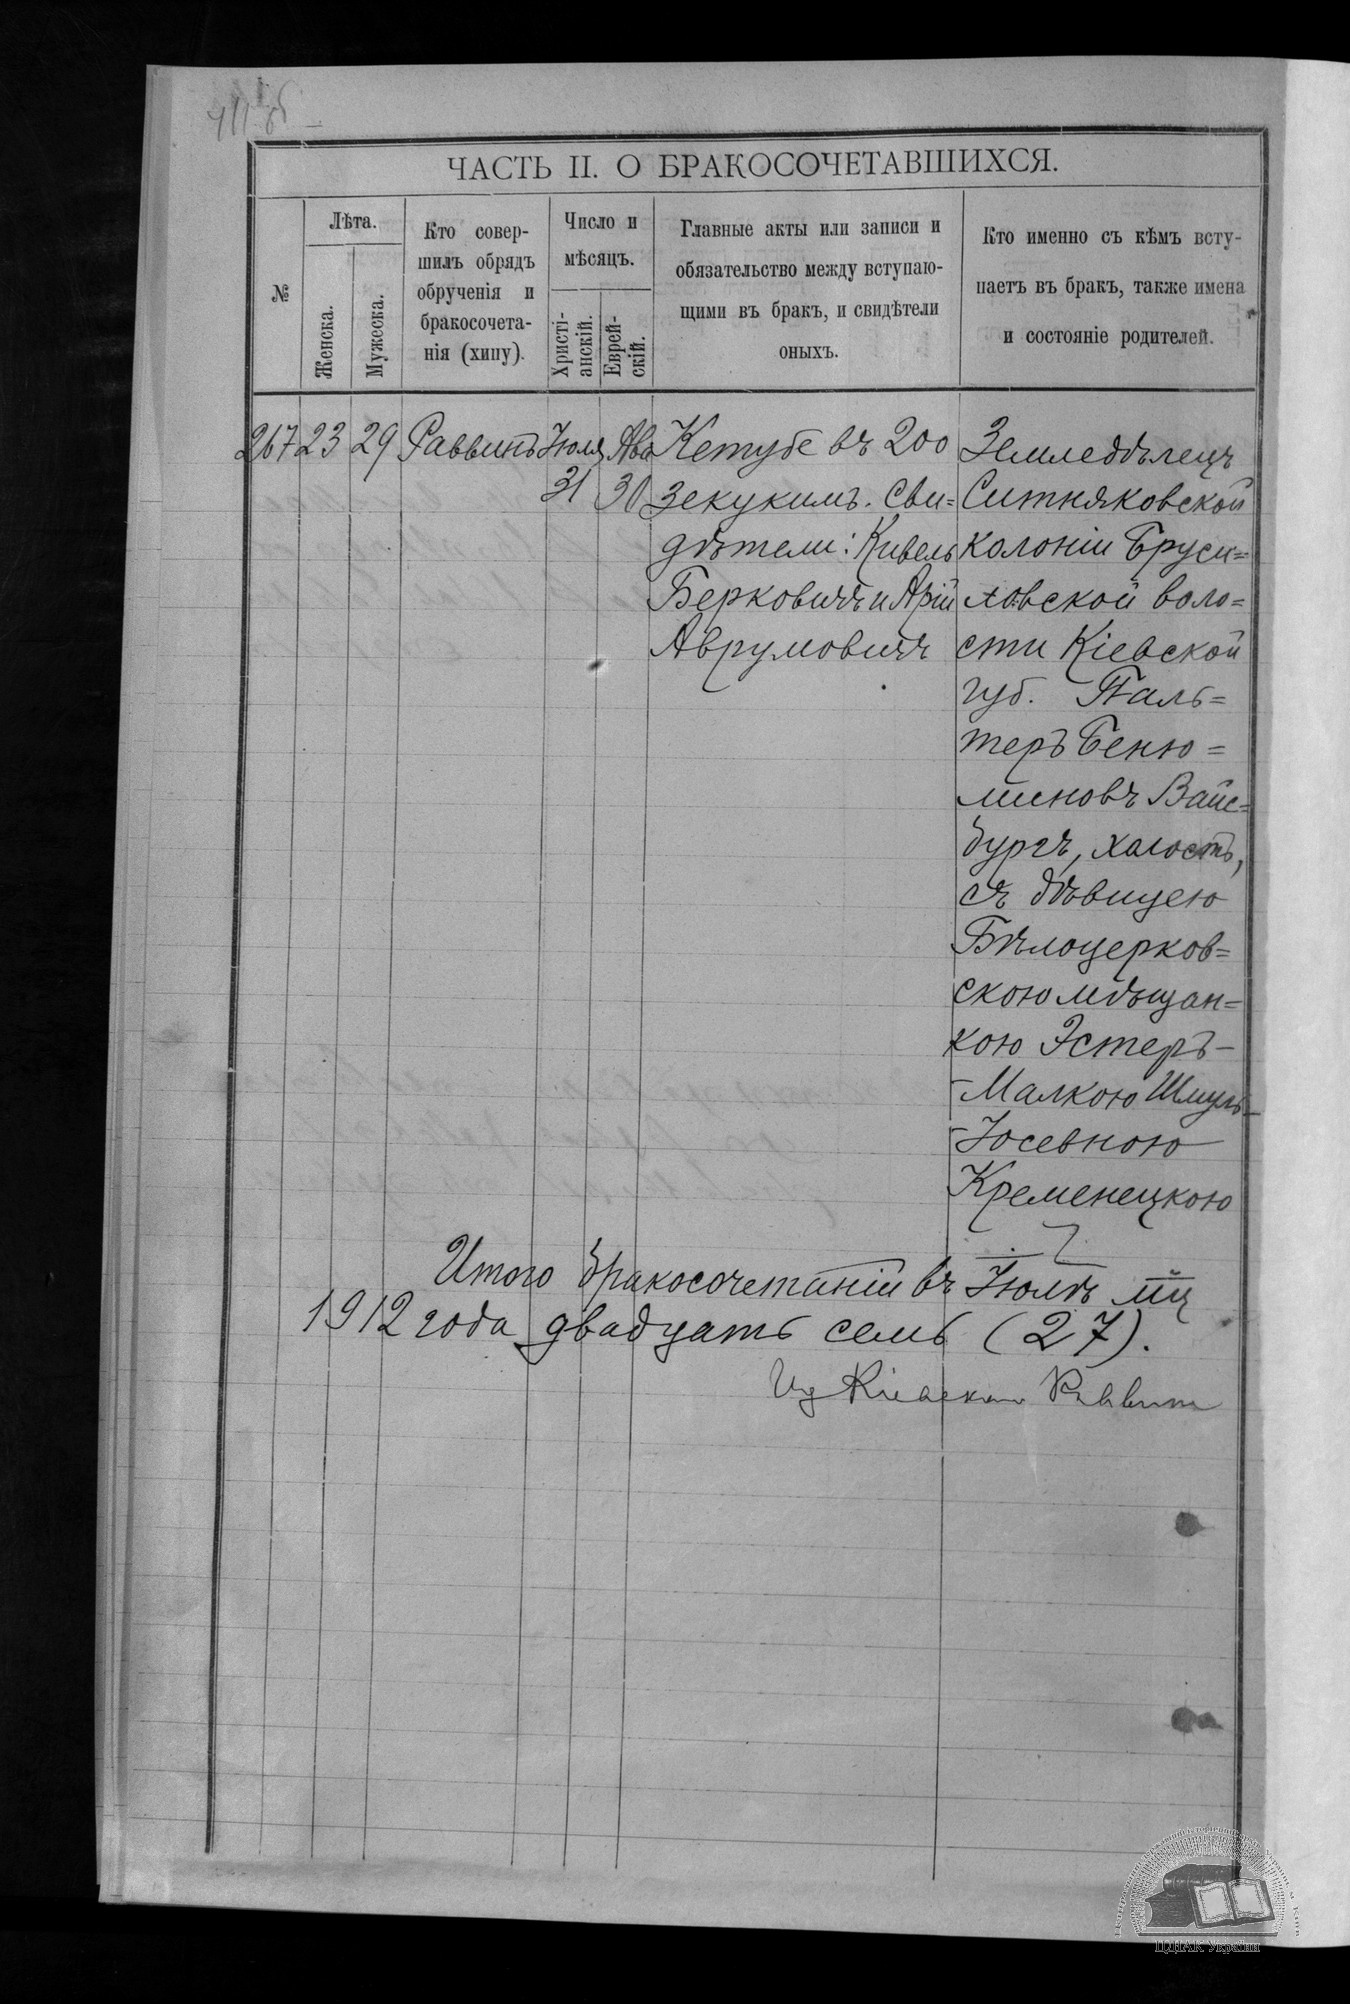 ЧАСТЬ II. О БРАКОСОЧЕТАВШИХСЯ.
№
Лѣта.
Женска.
Мужеска.
Кто совер-
шилъ обрядъ
обрученія и
бракосочета-
нія (хипу).
Число и
мѣсяцъ.
Христі-
анскій.
Еврей-
скій.
Главные акты или записи и
обязательство между вступаю-
щими въ бракъ, и свидѣтели
оныхъ.
Кто именно съ кѣмъ всту-
паетъ въ бракъ, также имена
и состояніе родителей.
267
23
29
Раввинъ
Іюля
31
Ава
30
Кетубе въ 200
зекукимъ. Сви=
дѣтели: Кивель
Берковичъ и Арій
Аврумовичъ
Земледѣлецъ
Ситняковской
колоніи Бруси=
ловской воло=
сти Кіевской
губ. Паль=
теръ Беню=
миновъ Вайс=
бургъ, холостъ,
съ дѣвицею
Бѣлоцерков=
скою мѣщан=
кою Эстеръ-
-Малкою Шмуль-
-Іосевною
Кременецкою
Итого бракосочетаній въ Іюлѣ мц
1912 года двадцать семь (27).
Кіевскій Раввинъ
ЦДІАК України